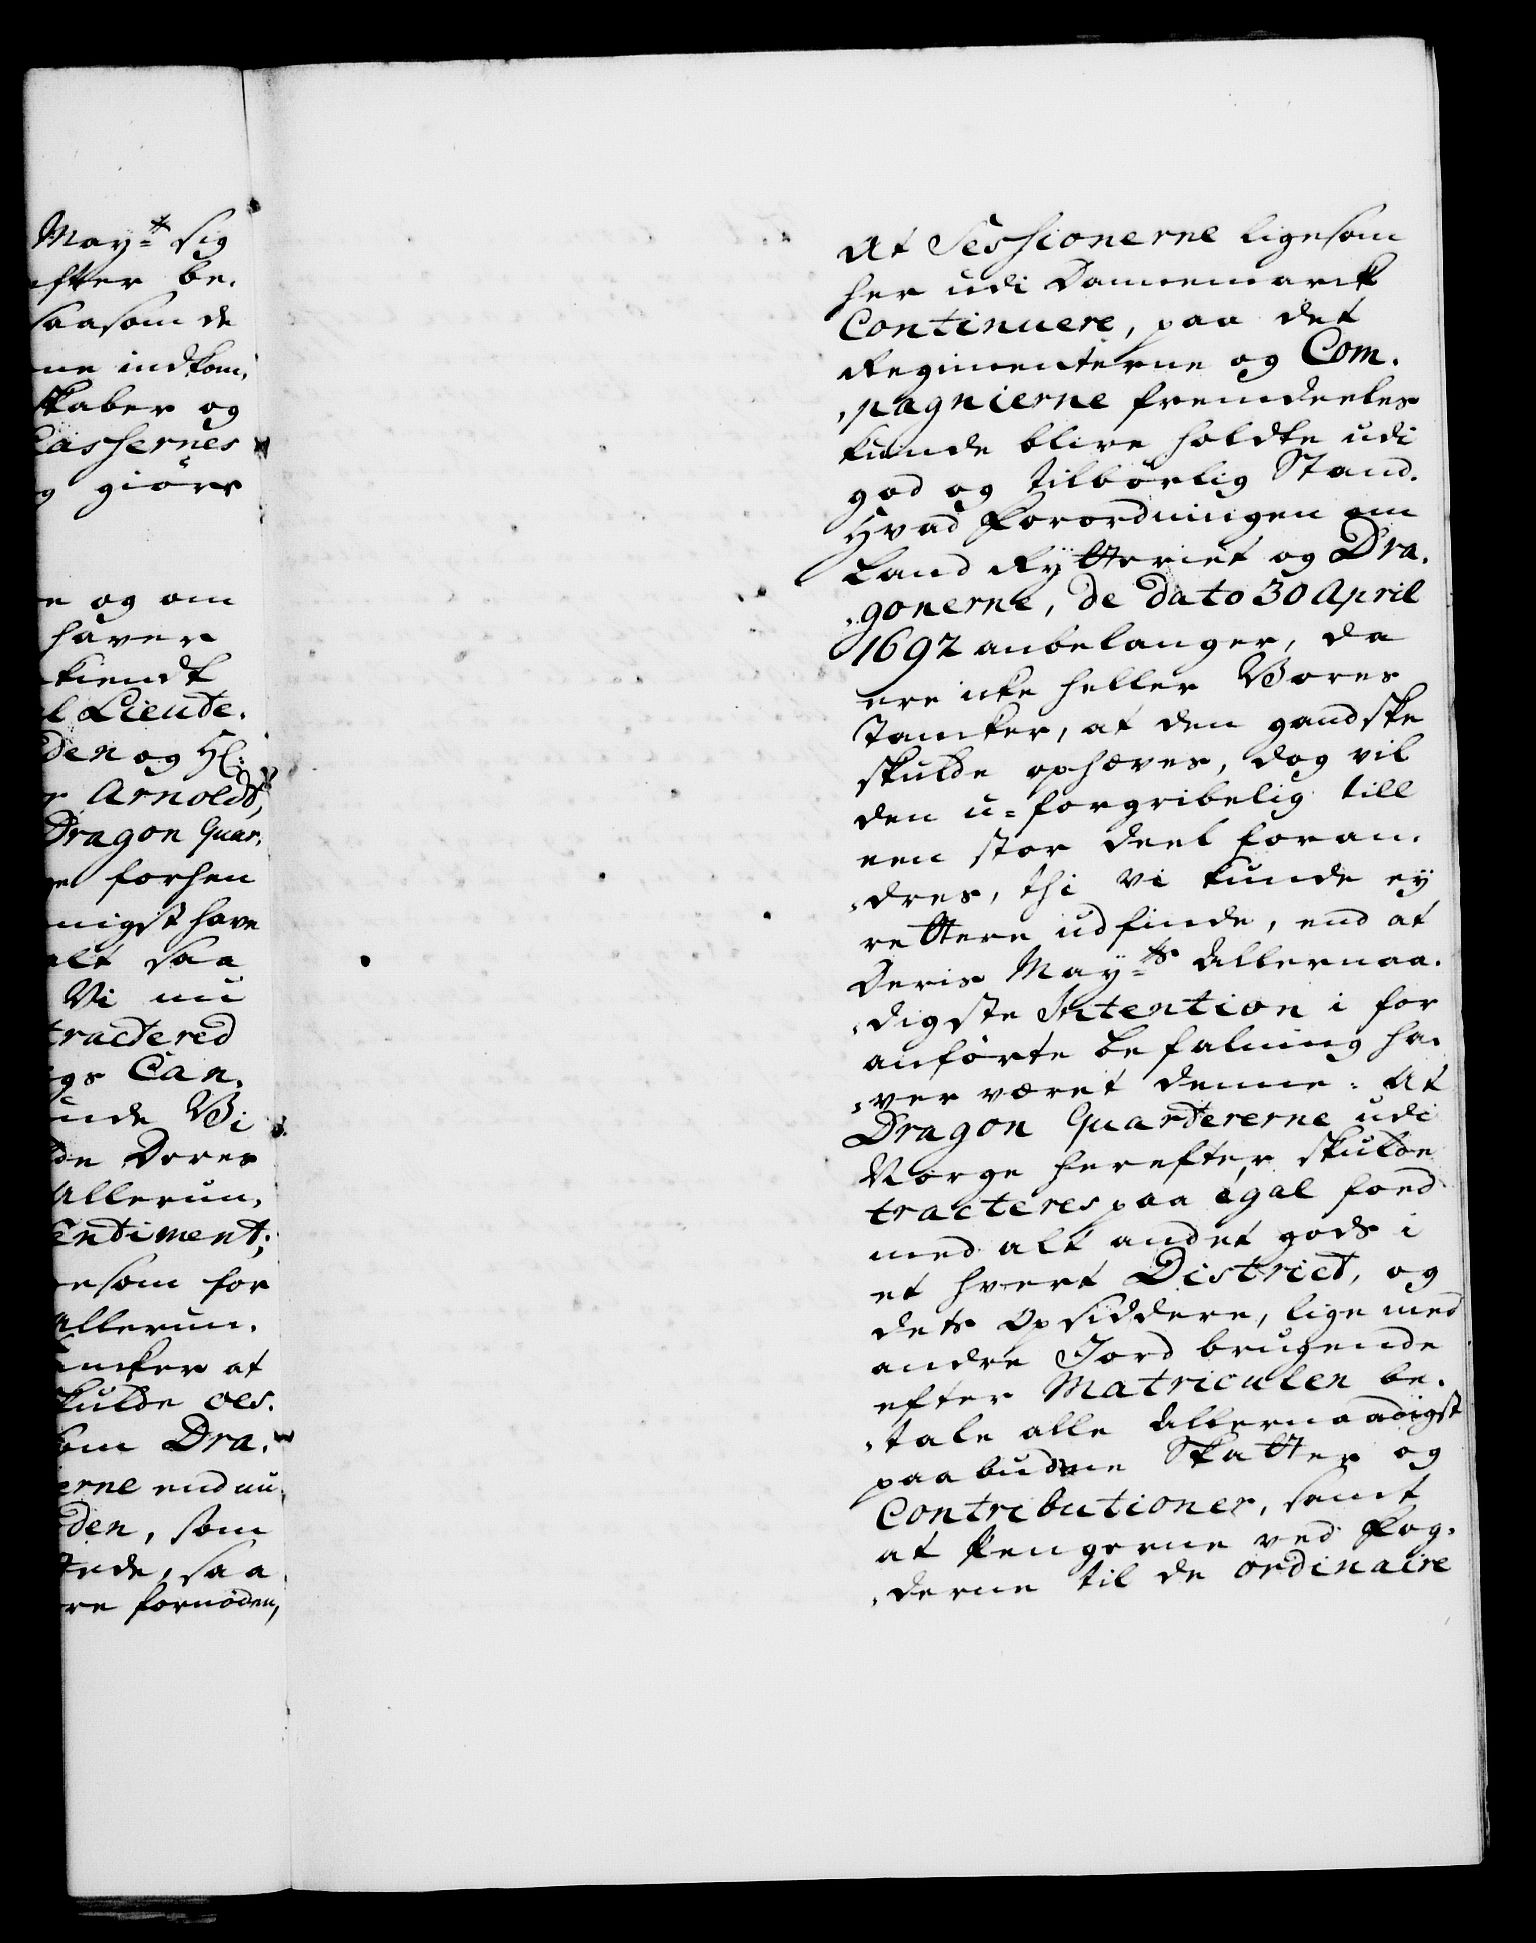 May:ᵗ sig
efter be.
saasom de
ne indkom,
skaber og
Casssernes
giörs
og om
haver
kiendt
l Lieute.
den og H:
Arnoldt,
Dragon Quar.
forhen
nigst have
alt saa
Vi nu
tracterød
gs Can.
unde Vi
de Deres
Allerun,
Sentiment;
esom for
Allerun.
ancker at
skulde oes.
som Dra.
erne endnu
den, som
stede, saa
re fornöden,
At Sessionerne ligesom
her udi Dannemarck
Continuere, paa det
Regimenterne og Com.
,pagnierne fremdeeles
kunde blive holdte udi
god og tilbörlig Stand.
Hvad Forordningen om
Land Rytteriet og Dra.
,gonerne, de dato 30 April
1692 anbelanger, da
ere icke heller Vores
Tancker, at den gandske
skulde ophæves, dog vil
den u=forgribelig till
een stor deel foran.
,dres, thi vi kunde ey
rettere udfinde, end at
Deris May:ᵗˢ Allernaa.
,digste Intention i for
anförte Befalning ha.
,ver været denne: At
Dragon Quartererne udi
Norge herefter skulde
tracteres paa égal foed
med alt andet gods i
et hvert District, og
dets Opsiddere, lige med
andre Jord brugende
efter Matriculen be.
,tale alle Allernaadigst
paabudne Skatter og
Contributioner, samt
at Pengerne ved Fog.
,derne til de ordinaire